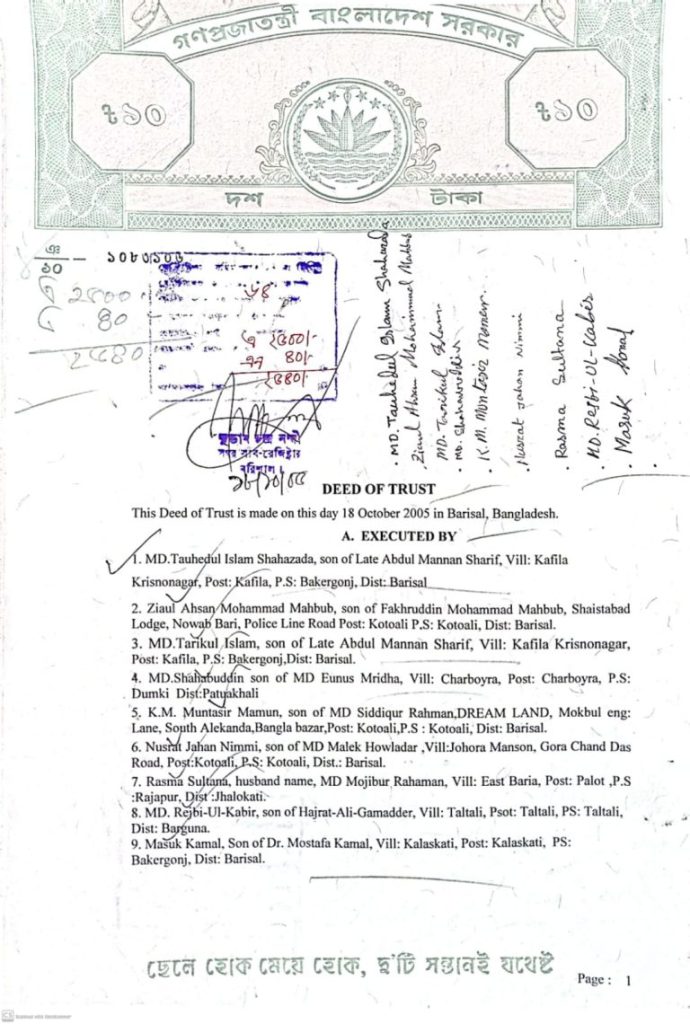 গণপ্রজাতন্ত্রী বাংলাদেশ সরকার
৳১০
৳১০
দশ
টাকা
২৫০০
৪০
২৫৪০
২৫০০/-
৪০/-
২৫৪০/-
বরিশাল।
১৮/১০/০৫
MD. Tauhedul Islam Shahazada
Ziaul Ahsan Mohammad Mahbub
MD. Tarikul Islam
MD. Shahabuddin
K.M. Montasir Mamun
Nusrat Jahan Nimmi
Rasma Sultana
MD. Rejbi-UL-Kabir
Masuk Kamal
DEED OF TRUST
This Deed of Trust is made on this day 18 October 2005 in Barisal, Bangladesh.
A. EXECUTED BY
1. MD.Tauhedul Islam Shahazada, son of Late Abdul Mannan Sharif, Vill: Kafila
Krisnonagar, Post: Kafila, P.S: Bakergonj, Dist: Barisal
2. Ziaul Ahsan Mohammad Mahbub, son of Fakhruddin Mohammad Mahbub, Shaistabad
Lodge, Nowab Bari, Police Line Road Post: Kotoali P.S: Kotoali, Dist: Barisal.
3. MD.Tarikul Islam, son of Late Abdul Mannan Sharif, Vill: Kafila Krisnonagar,
Post: Kafila, P.S: Bakergonj,Dist: Barisal.
4. MD.Shahabuddin son of MD Eunus Mridha, Vill: Charboyra, Post: Charboyra, P.S:
Dumki Dist:Patuakhali
5. K.M. Muntasir Mamun, son of MD Siddiqur Rahman,DREAM LAND, Mokbul eng:
Lane, South Alekanda,Bangla bazar,Post: Kotoali,P.S : Kotoali, Dist: Barisal.
6. Nusrat Jahan Nimmi, son of MD Malek Howladar ,Vill:Johora Manson, Gora Chand Das
Road, Post:Kotoali, P.S: Kotoali, Dist.: Barisal.
7. Rasma Sultana, husband name, MD Mojibur Rahaman, Vill: East Baria, Post: Palot ,P.S
:Rajapur, Dist :Jhalokati.
8. MD. Rejbi-Ul-Kabir, son of Hajrat-Ali-Gamadder, Vill: Taltali, Psot: Taltali, PS: Taltali,
Dist: Barguna.
9. Masuk Kamal, Son of Dr. Mostafa Kamal, Vill: Kalaskati, Post: Kalaskati, PS:
Bakergonj, Dist: Barisal.
ছেলে হোক মেয়ে হোক, দু'টি সন্তানই যথেষ্ট
Page : 1